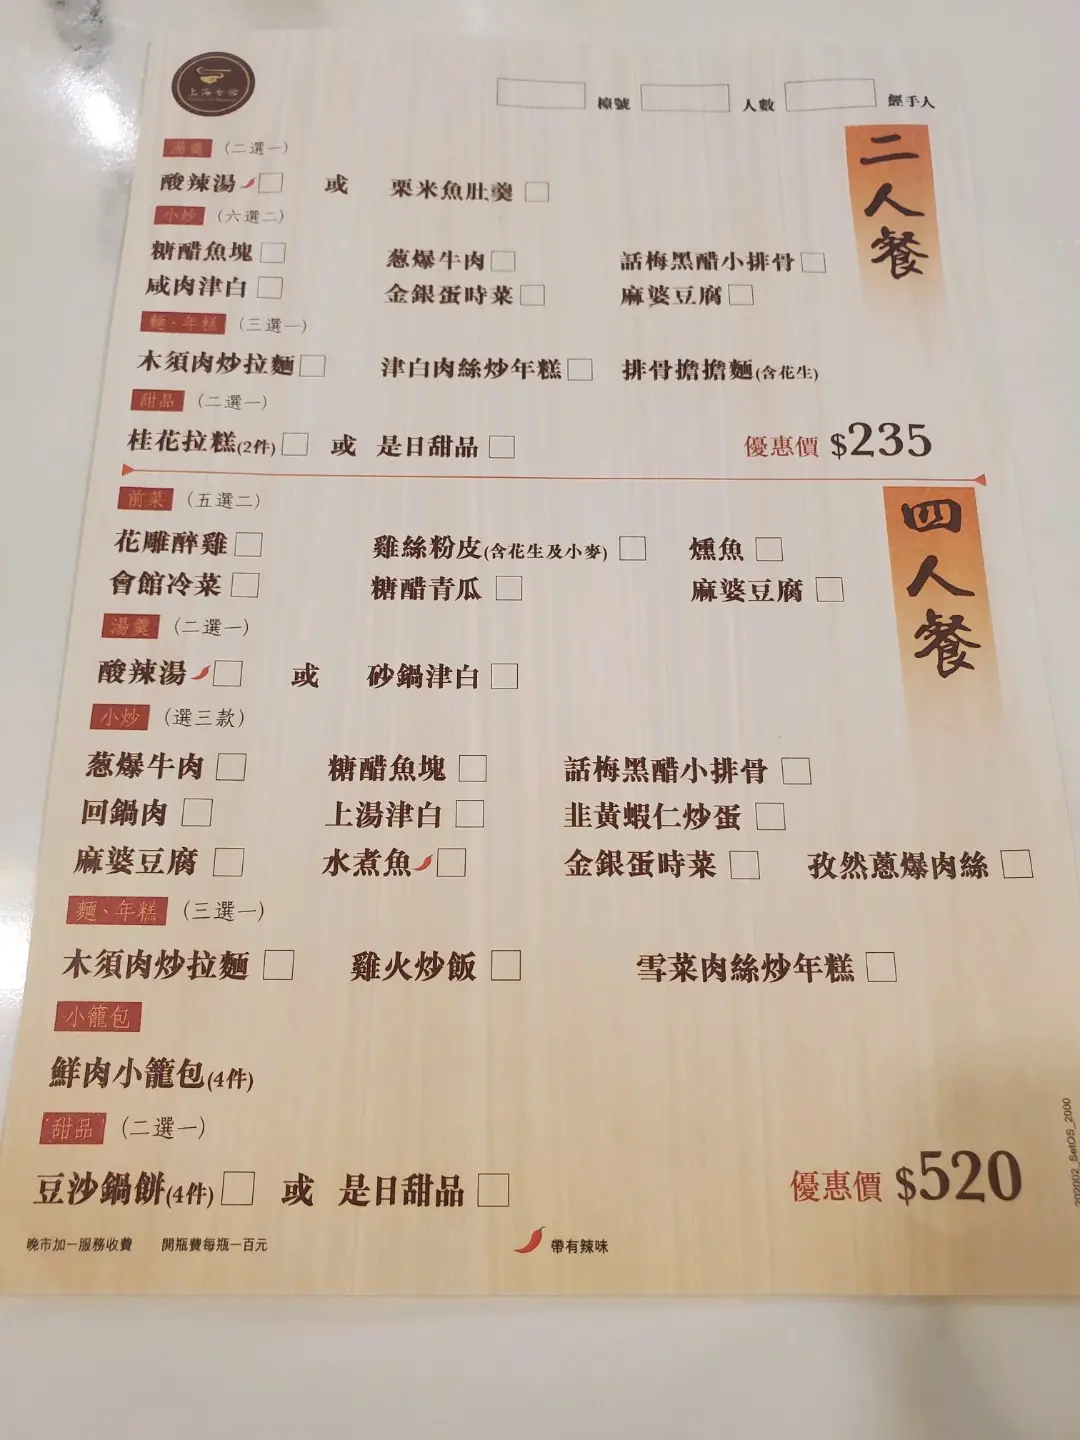 上海會館
檯號 人數 經手人
二人餐
湯羹 (二選一)
酸辣湯 或 粟米魚肚羹
小炒 (六選二)
糖醋魚塊 葱爆牛肉 話梅黑醋小排骨
咸肉津白 金銀蛋時菜 麻婆豆腐
麵、年糕 (三選一)
木須肉炒拉麵 津白肉絲炒年糕 排骨擔擔麵(含花生)
甜品 (二選一)
桂花拉糕(2件) 或 是日甜品 優惠價 $235
四人餐
前菜 (五選二)
花雕醉雞 雞絲粉皮(含花生及小麥) 燻魚
會館冷菜 糖醋青瓜 麻婆豆腐
湯羹 (二選一)
酸辣湯 或 砂鍋津白
小炒 (選三款)
葱爆牛肉 糖醋魚塊 話梅黑醋小排骨
回鍋肉 上湯津白 韭黃蝦仁炒蛋
麻婆豆腐 水煮魚 金銀蛋時菜 孜然蔥爆肉絲
麵、年糕 (三選一)
木須肉炒拉麵 雞火炒飯 雪菜肉絲炒年糕
小籠包
鮮肉小籠包(4件)
甜品 (二選一)
豆沙鍋餅(4件) 或 是日甜品 優惠價 $520
晚市加一服務收費 開瓶費每瓶一百元 帶有辣味
202002_SetOS_2000